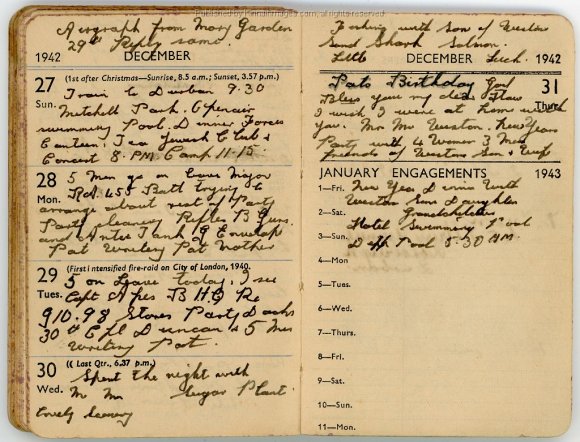 Published by Kirrinfirmages.com, all rights reserved.
Aerograph from Mary Garden
29th Reply same.
1942 DECEMBER
27 (1st after Christmas—Sunrise, 8.5 a.m.; Sunset, 3.57 p.m.)
Sun. Train to Durban 9.30
Mitchell Park. Openair
swimming Pool. Dinner Forces
Canteen. Tea Jewish Club &
Concert 8. PM. Camp 11-15.
28 5 Men go on Leave Major
Mon. 455 Batt trying to
arrange about rest of Party
Party cleaning Rifles B Guns
and Anti Tank
Pat Writing Pat Mother
29 (First intensified fire-raid on City of London, 1940.
Tues. 5 on Leave today. I see
Capt B H Q Re
910.98 Stores Party
30th Cpl Duncan & 5 Men
Writing Pat.
30 (☾ Last Qtr., 6.37 p.m.)
Wed. Spent the night with
Mr Mrs Sugar Plant
lovely scenery
with Son of Weston
Sand Shark Salmon.
DECEMBER 1942
Pats Birthday God 31
Bless you my dear Thurs.
I wish I were at home with
you. Mr Mrs Weston. New Years
Party with 4 Women 3 Men
friends of Westons Son & Wife
JANUARY ENGAGEMENTS 1943
1—Fri. New Yea Dinner With
Weston Son Daughter
2—Sat. Grandchildren
3—Sun. Hotel Swimming Pool
D Pool 5.30 PM.
4—Mon
5—Tues.
6—Wed.
7—Thurs.
8—Fri.
9—Sat.
10—Sun.
11—Mon.